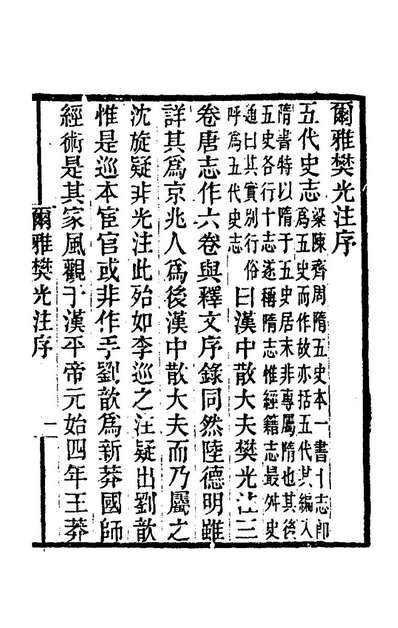 爾雅樊光注序
五代史志梁陳齊周隋五史本一書十志即
爲五史而作故亦括五代其編入
隋書特以隋于五史居末非專屬隋也其後
五史各行十志遂稱隋志惟經籍志最舛史
通曰其實別行俗
呼爲五代史志曰漢中散大夫樊光注三
卷唐志作六卷與釋文序錄同然陸德明雖
詳其爲京兆人爲後漢中散大夫而乃屬之
沈旋疑非光注此殆如李巡之注疑出劉歆
惟是巡本宦官或非作手劉歆爲新莽國師
經術是其家風觀于漢平帝元始四年王莽
爾雅樊光注序
一